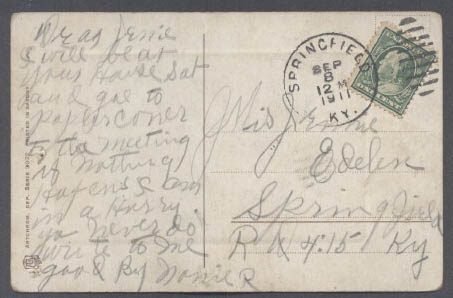 Dear Jennie
I will be at
your House Sat
and goe to
to the meeting
if nothing
Hapens I am
in a Hurry
you never do
write to me
good By Nonie R
SPRINGFIELD
SEP
8
12 M
1911
KY.
Miss Jennie
Edelen
Springfield
R R 4. Ky